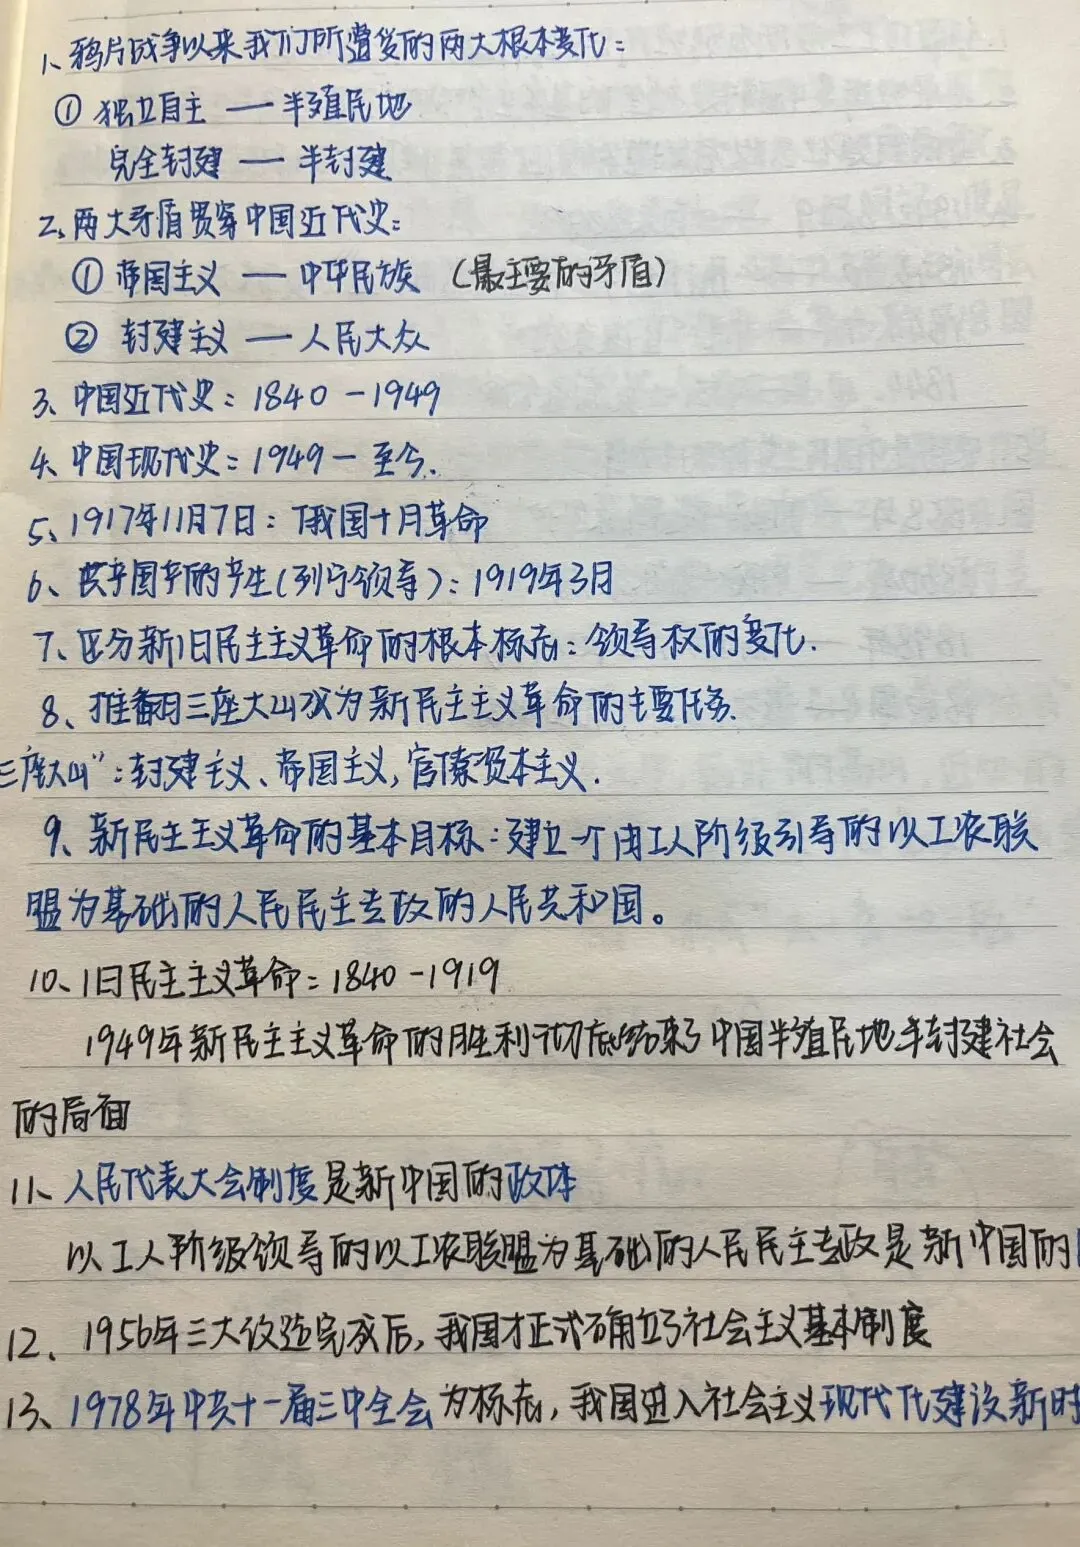 1、鸦片战争以来我们所遭受的两大根本变化：
① 独立自主 — 半殖民地
完全封建 — 半封建
2、两大矛盾贯穿中国近代史：
① 帝国主义 — 中华民族 （最主要的矛盾）
② 封建主义 — 人民大众
3、中国近代史：1840-1949
4、中国现代史：1949-至今.
5、1917年11月7日：俄国十月革命
6、共产国产的产生(列宁领导)：1919年3月
7、区分新旧民主主义革命的根本标志：领导权的变化.
8、推翻三座大山成为新民主主义革命的主要任务.
三座大山"：封建主义、帝国主义,官僚资本主义.
9、新民主主义革命的基本目标：建立一个由工人阶级引导的以工农联
盟为基础的人民民主专政的人民共和国。
10、旧民主主义革命：1840-1919
1949年新民主主义革命的胜利彻底结束了中国半殖民地半封建社会
的局面
11、人民代表大会制度是新中国的政体
以工人阶级领导的以工农联盟为基础的人民民主专政是新中国的
12、1956年三大改造完成后,我国才正式确立了社会主义基本制度
13、1978年中共十一届三中全会为标志,我国进入社会主义现代化建设新时